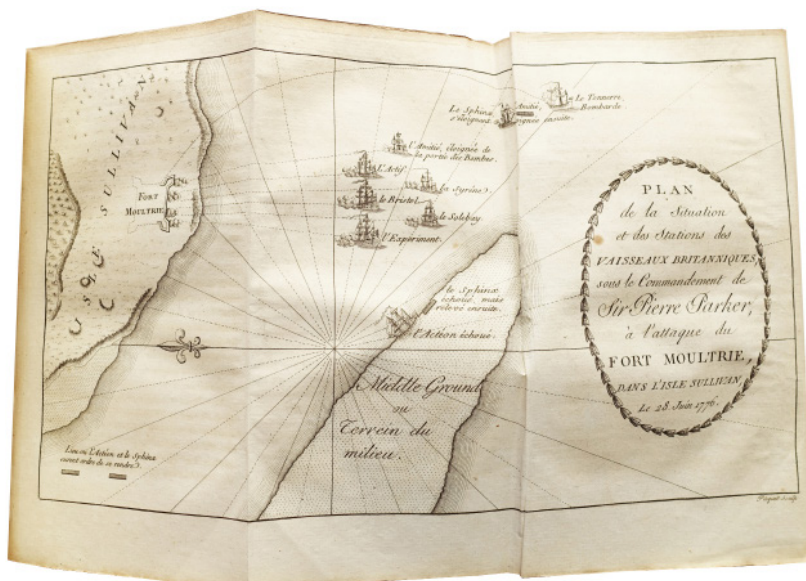 ISLE SULLIVAN
FORT
MOULTRIE
Le Sphinx
s'éloignant
ensuite.
Le Tonnerre,
Bombarde
l'Amitié, éloignée de
la portée des Bombes.
L'Actif
la Syréne
le Bristol
le Solebay
l'Experiment
le Sphinx
échoué, mais
relevé ensuite.
l'Action échoué.
Middle Ground
ou
Terrein du
milieu.
Lieu où L'Action et le Sphinx
eurent ordre de se rendre.
PLAN
de la Situation
et des Stations des
VAISSEAUX BRITANNIQUES,
sous le Commandement de
Sir Pierre Parker,
à l'attaque du
FORT MOULTRIE,
DANS L'ISLE SULLIVAN,
Le 28. Juin 1776.